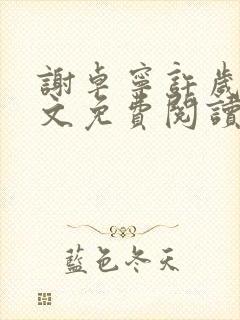 謝卓寧許歲
文免費閱讀
藍色冬天